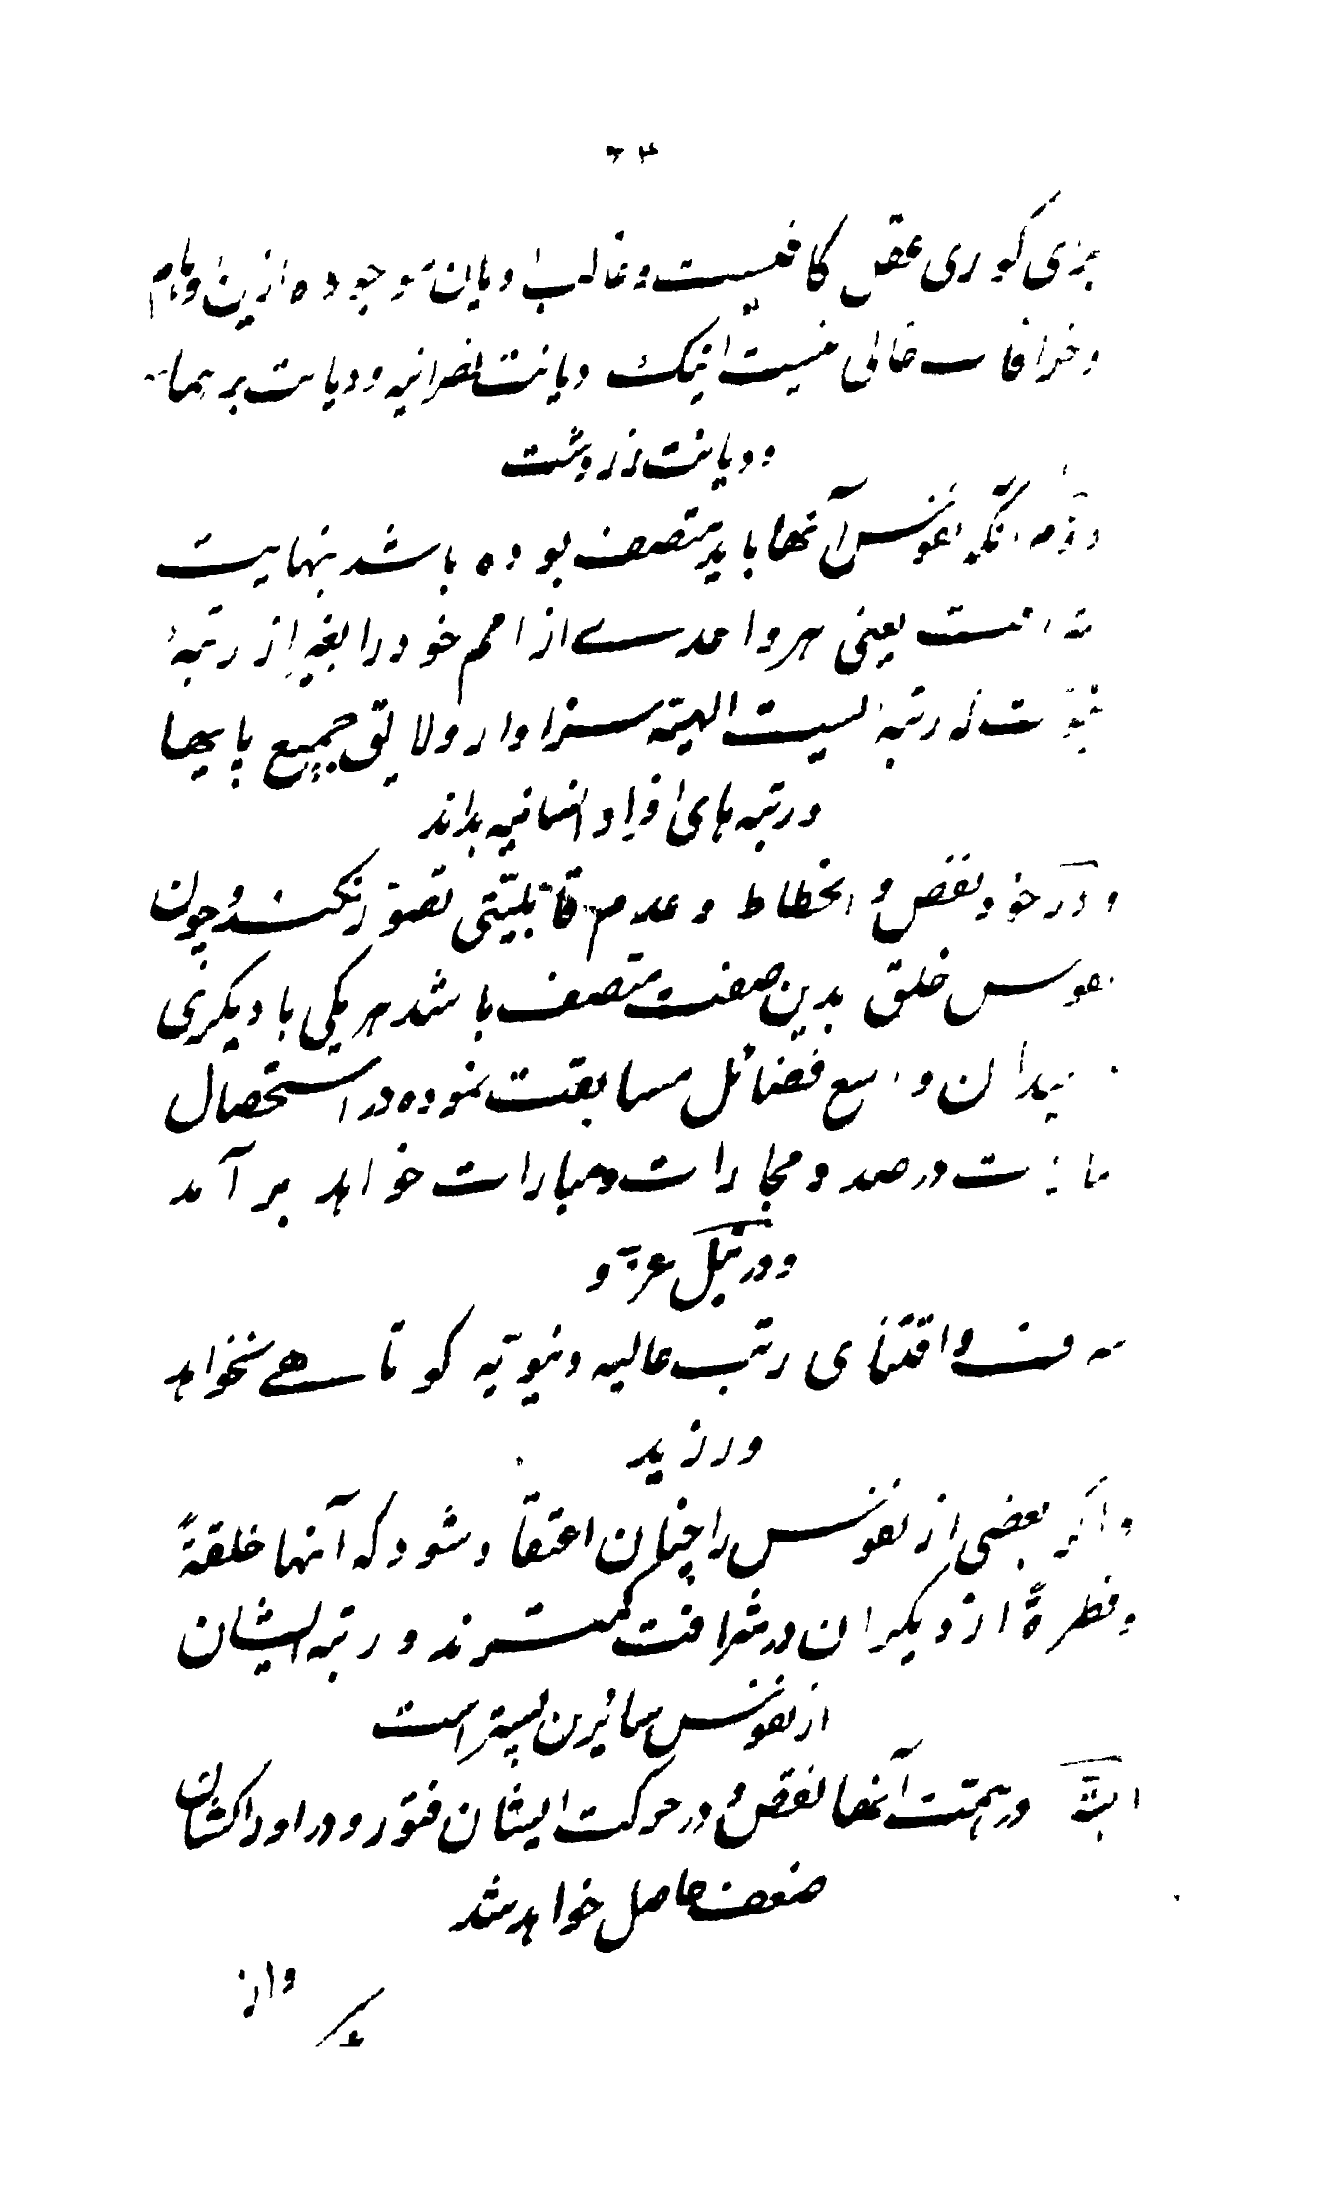 ٦٣
برای کوری عقل کافیست و غالب ادیان موجوده ازین اوهام
و خرافات خالی نیست اینک دیانت نصرانیه و دیانت برهما
و دیانت زردشت
دوم آنکه نفوس آنها باید متصف بوده باشد بنهایت
شرافت یعنی هر واحدے از امم خود را بغیر از رتبهٔ
نبوّت که رتبهٔ ایست الهیّه سزاوار ولایق جمیع پایها
و رتبه های افراد انسانیه بداند
و در خود نقص و انحطاط و عدم قابلیّتی تصوّر نکند و چون
نفوس خلق بدین صفت متصف باشد هر یکی با دیگری
میدان واسع فضائل مسابقت نموده در استحصال
در صدد و مجارات و مبارات خواهد بر آمد
و در نیل عزّ و
شرف و اقتنای رتب عالیه دنیویّه کوتاهے نخواهد
ورزید
و اگر بعضی از نفوس را چنان اعتقاد شود که آنها خلقةً
و فطرةً از دیگران در شرافت کمترند و رتبه ایشان
از نفوس سائرین پستر است
البتّه در همّت آنها نقص و در حرکت ایشان فتور و در ادراکشان
ضعف حاصل خواهد شد
واز